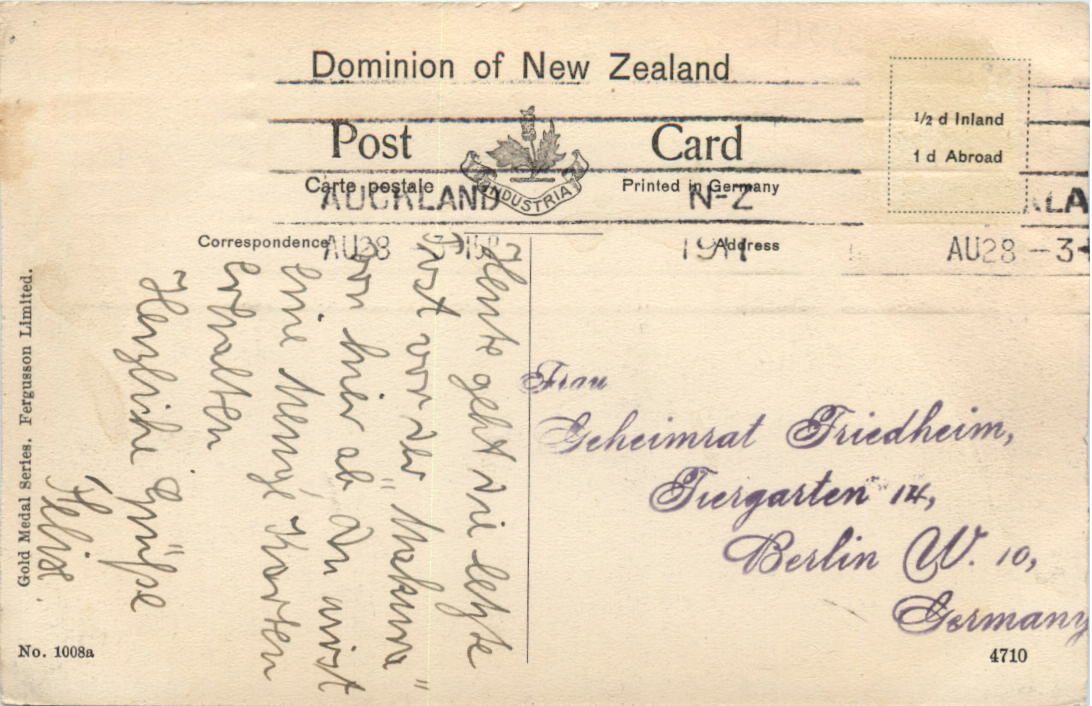 Dominion of New Zealand
Post Card
INDUSTRIA
Carte postale
Printed in Germany
1/2 d Inland
1 d Abroad
AUCKLAND N-Z
AU28 1911
AU28 -3-
Correspondence
Address
Heute geht die letzte
Post von der "Makura"
von hier ab. Du wirst
eine Menge Karten
erhalten
Herzliche Grüße
Felix.
Frau
Geheimrat Friedheim,
Tiergarten 14,
Berlin W. 10,
Germany
Gold Medal Series. Fergusson Limited.
No. 1008a
4710